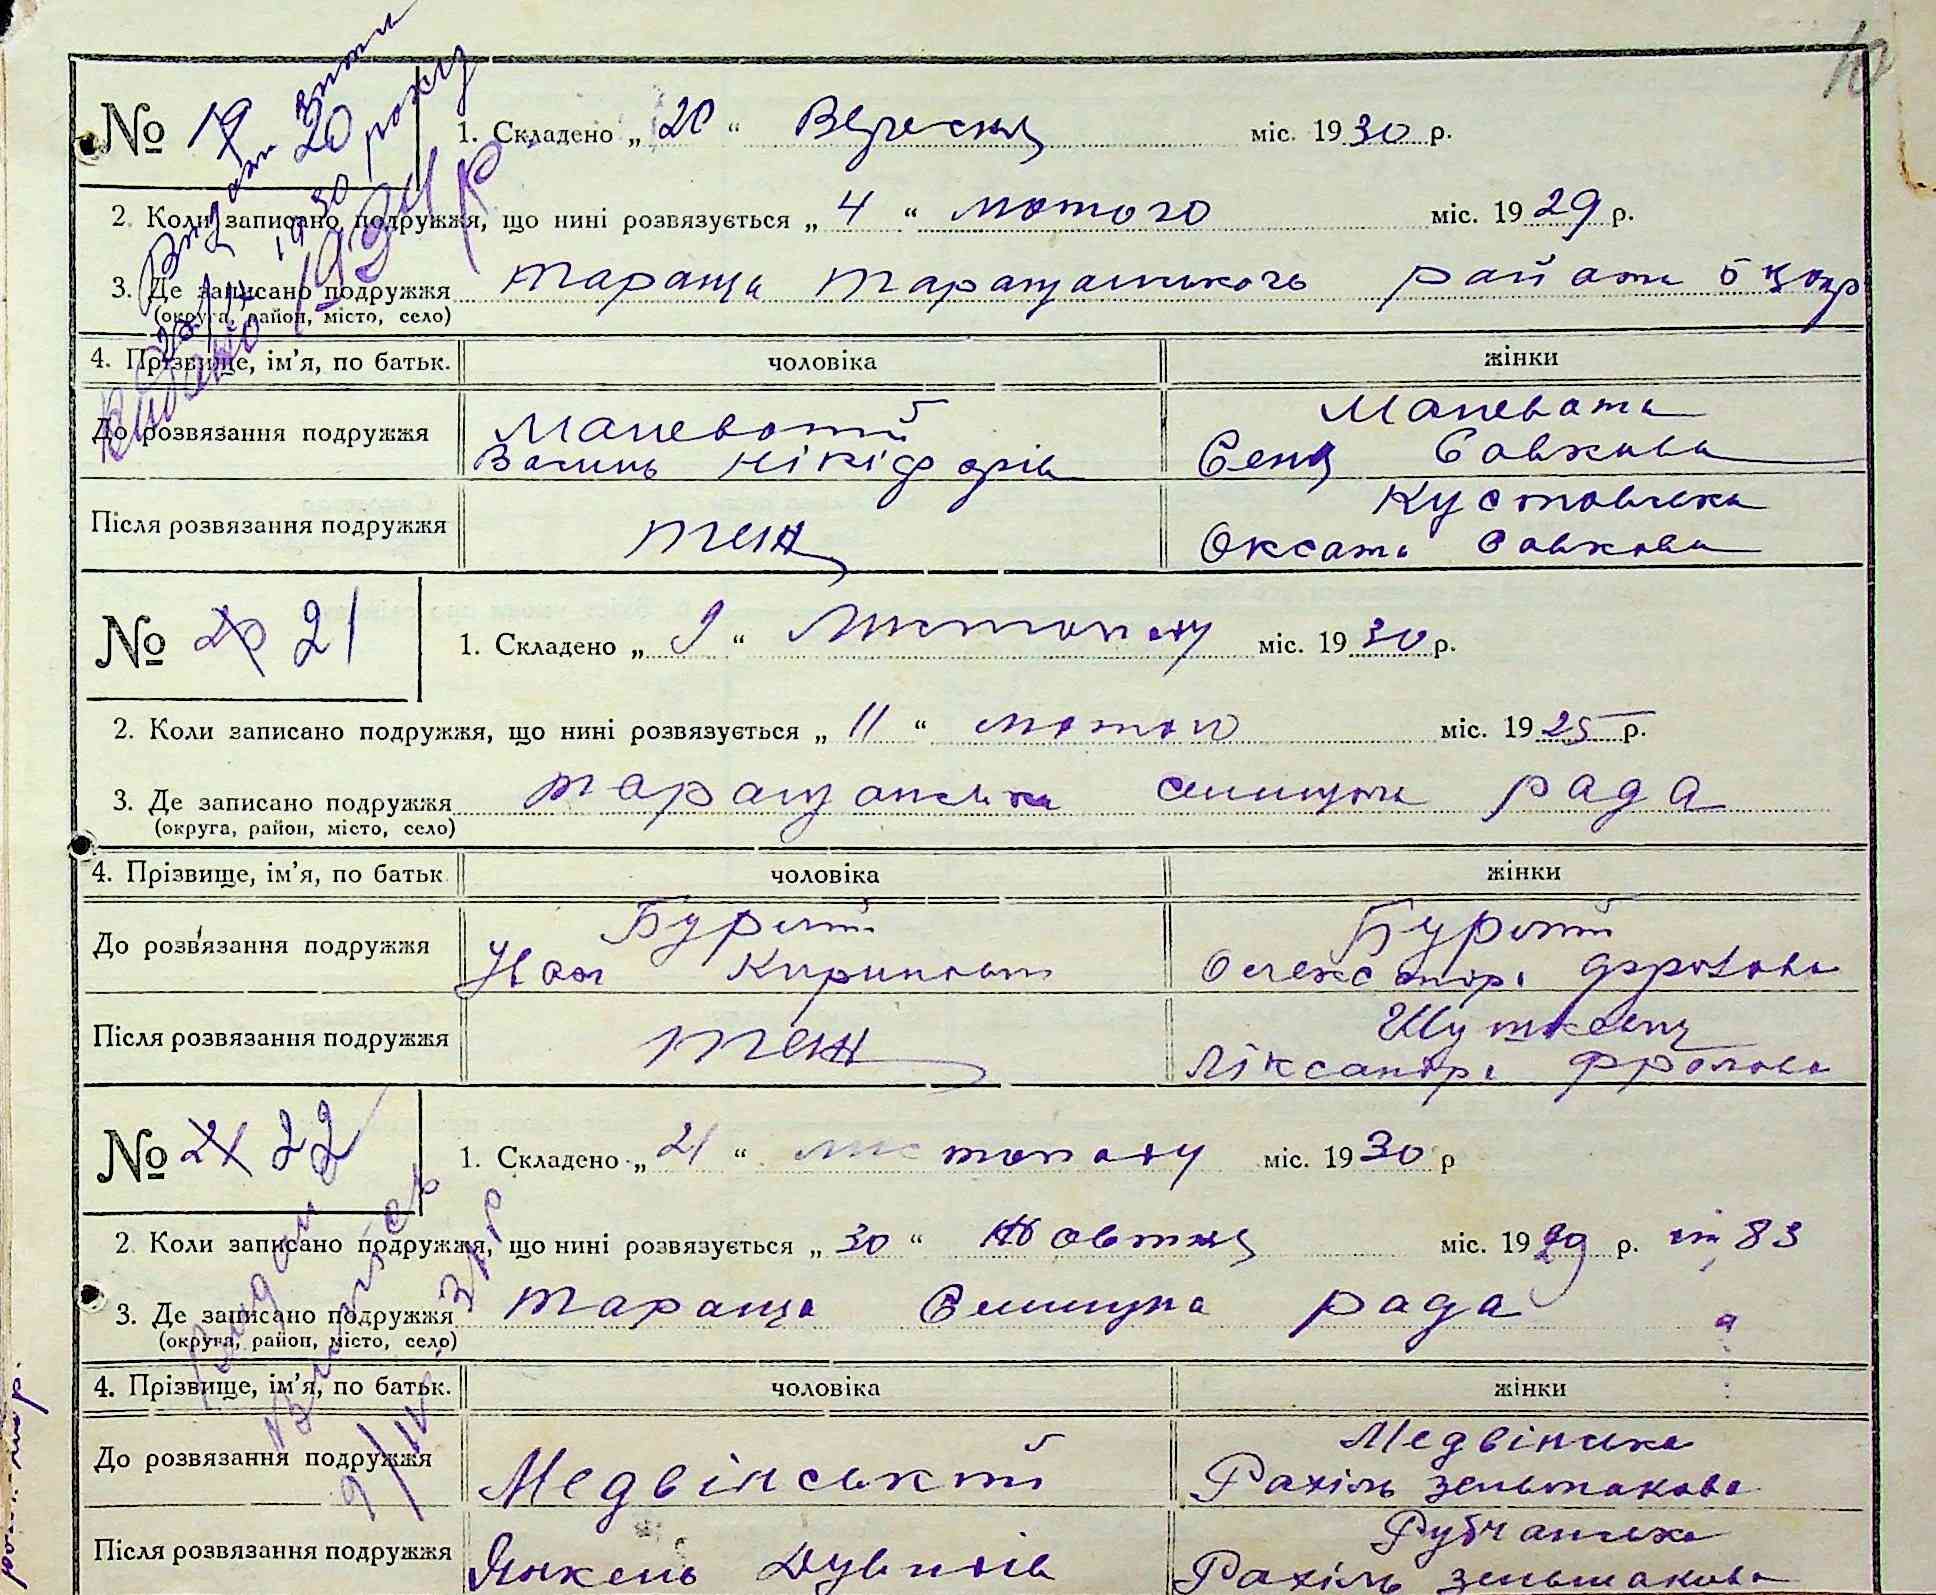 10
№ 19 20 1. Складено „ 20 “ Вересня міс. 1930 р.
2. Коли записано подружжя, що нині розвязується „ 4 “ лютого міс. 1929 р.
3. Де записано подружжя Тараща Таращанського района БЦокр
(округа, район, місто, село)
4. Прізвище, ім'я, по батьк. чоловіка жінки
До розвязання подружжя Маневатий Маневата
Василь Нікіфорів Сеня Савкова
Після розвязання подружжя теж Кустовська
Оксана Савкова
Видано 1934 р.
№ 20 21 1. Складено „ 9 “ Листопаду міс. 1930 р.
2. Коли записано подружжя, що нині розвязується „ 11 “ лютого міс. 1925 р.
3. Де записано подружжя Таращанська селищна рада
(округа, район, місто, село)
4. Прізвище, ім'я, по батьк чоловіка жінки
До розв'язання подружжя
Іван Кирилович Олександра Фролова
Після розвязання подружжя теж
Ліксандра Фролова
№ 21 22 1. Складено „ 21 “ листопаду міс. 1930 р
2. Коли записано подружжя, що нині розвязується „ 30 “ Жовтня міс. 1929 р. 83
3. Де записано подружжя Тараща Селищна рада
(округа, район, місто, село)
4. Прізвище, ім'я, по батьк. чоловіка жінки
До розвязання подружжя Медвінський Медвінська
Рахіль Зельманова
Після розвязання подружжя Янкель Дувидів Рубчанська
Рахіль Зельманова